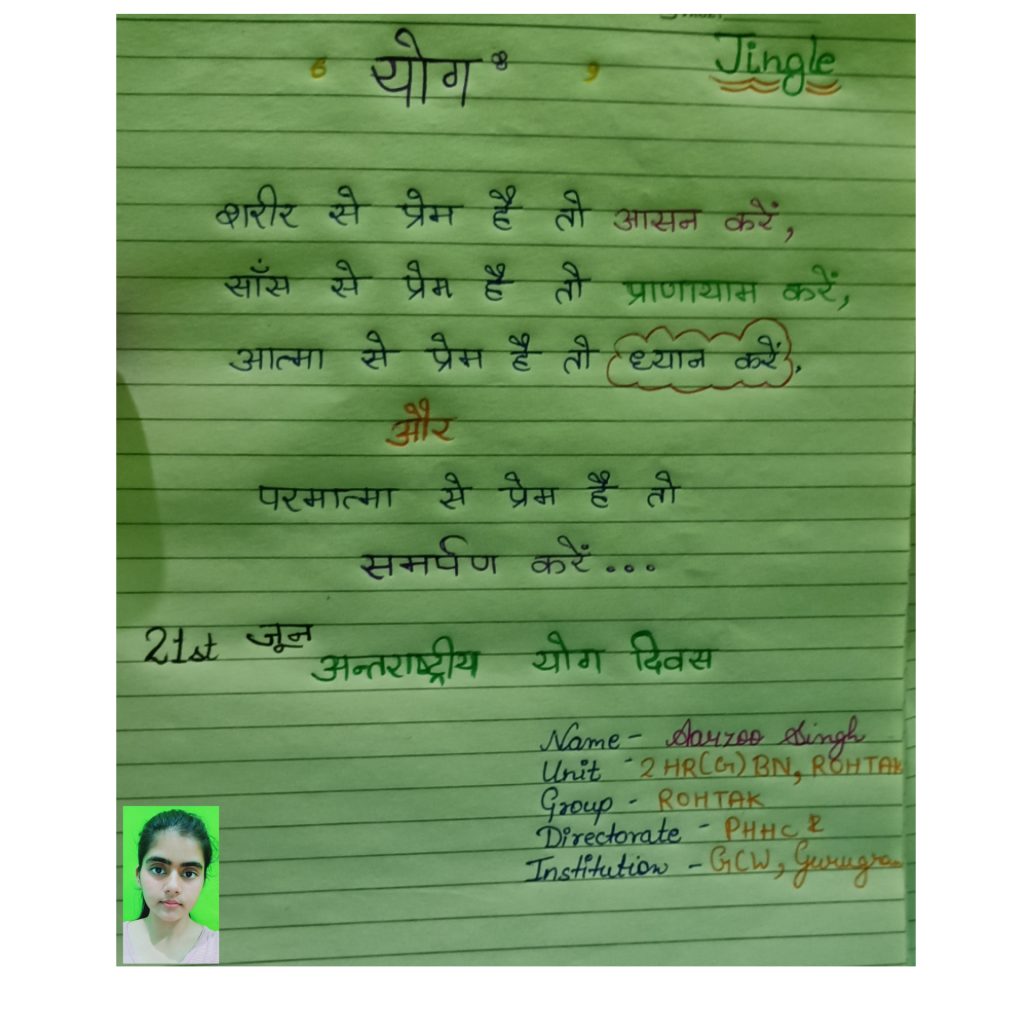 ' योग '
Jingle
शरीर से प्रेम है तो आसन करें,
साँस से प्रेम है तो प्राणायाम करें,
आत्मा से प्रेम है तो ध्यान करें,
और
परमात्मा से प्रेम है तो
समर्पण करें...
21st जून
अन्तराष्ट्रीय योग दिवस
Name - Aarzoo Singh
Unit - 2 HR(G) BN, ROHTAK
Group - ROHTAK
Directorate - PHHC &
Institution - GCW, Gurugram